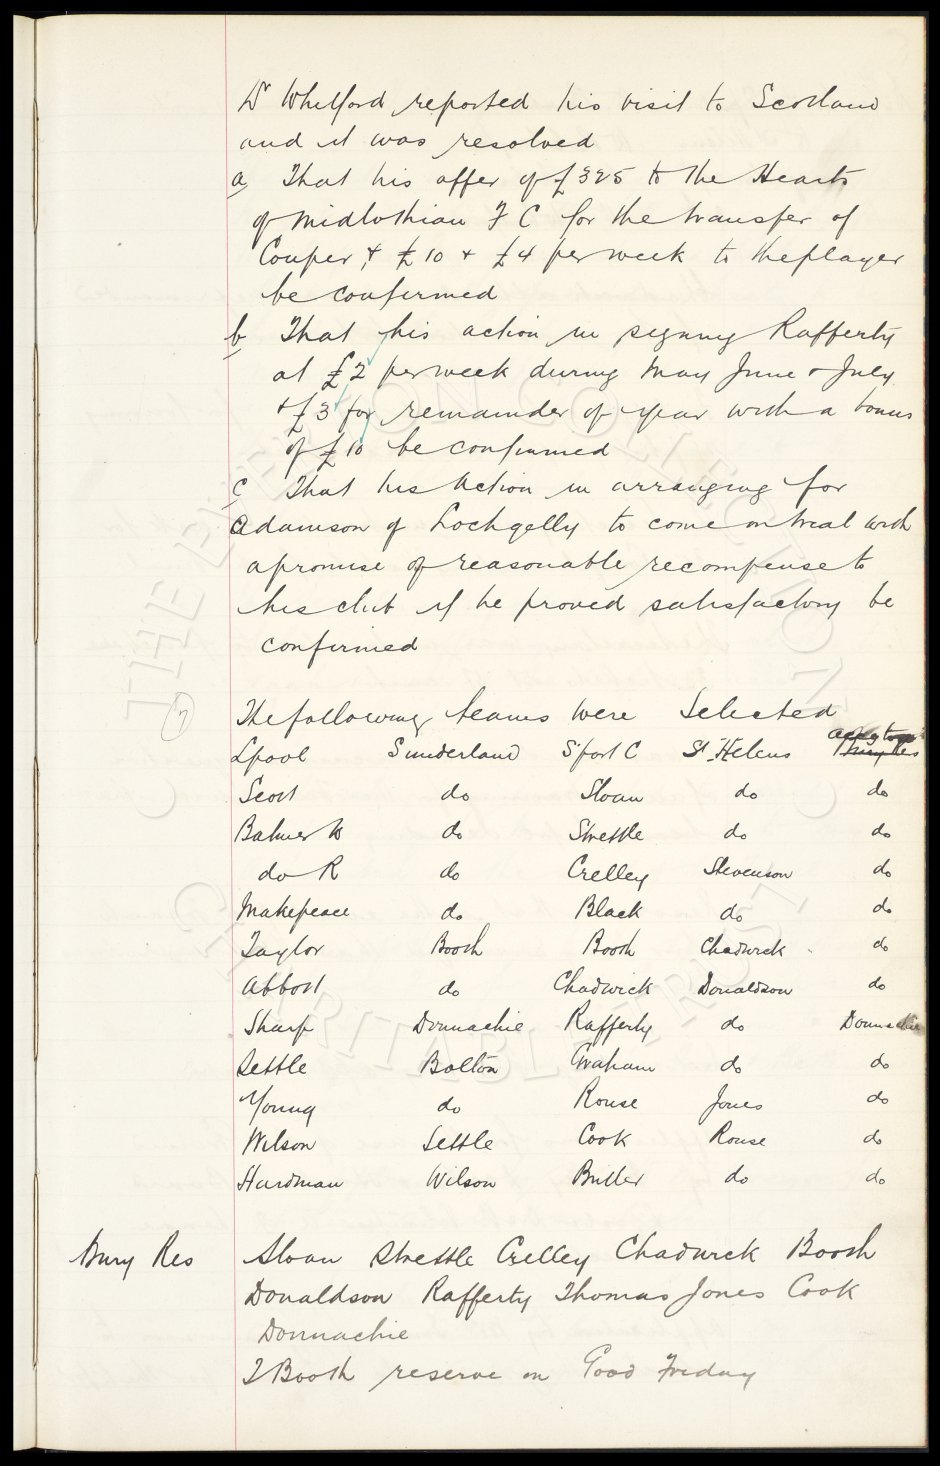 Dr Whitford reported his visit to Scotland
and it was resolved
a That his offer of £325 to the Hearts
of Midlothian F C for the transfer of
Couper, & £10 & £4 per week to the player
be confirmed
b That his action in signing Rafferty
at £2 per week during May June & July
& £3 for remainder of year with a bonus
of £10 be confirmed
c That his Action in arranging for
Adamson of Lochgelly to come on trial with
a promise of reasonable recompense to
his club if he proved satisfactory be
confirmed
7
The following teams were Selected
Lpool Sunderland S'port C St Helens Bury Res
Scott do Sloan do do
Balmer W do Strettle do do
do R do Crelley Stevenson do
Makepeace do Black do do
Taylor Booth Booth Chadwick do
Abbott do Chadwick Donaldson do
Sharp Donnachie Rafferty do Donnachie
Settle Bolton Graham do do
Young do Rouse Jones do
Wilson Settle Cook Rouse do
Hardman Wilson Butler do do
Bury Res Sloan Strettle Crelley Chadwick Booth
Donaldson Rafferty Thomas Jones Cook
Donnachie
T Booth reserve on Good Friday
THE EVERTON COLLECTION
CHARITABLE TRUST